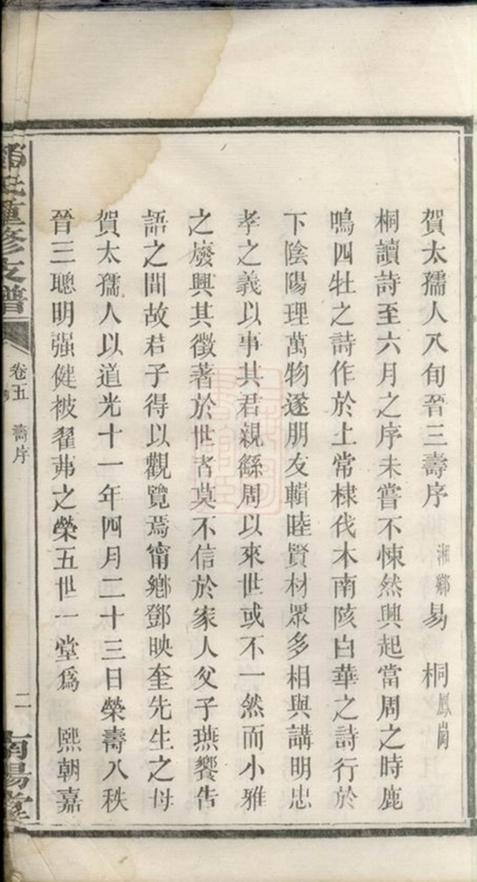 賀太孺人八旬晉三壽序 湘鄉 易 桐 鳳崗
桐讀詩至六月之序未嘗不悚然興起當周之時鹿
鳴四牡之詩作於上常棣伐木南陔白華之詩行於
下陰陽理萬物遂朋友輯睦賢材眾多相與講明忠
孝之義以事其君親繇周以來世或不一然而小雅
之廢興其徵著於世者莫不信於家人父子燕饗告
語之間故君子得以觀覽焉甯鄉鄧映奎先生之母
賀太孺人以道光十一年四月二十三日榮壽八秩
晉三聰明强健被翟茀之榮五世一堂為 熙朝嘉
鄧氏重修支譜 卷五 壽序 二 南陽堂